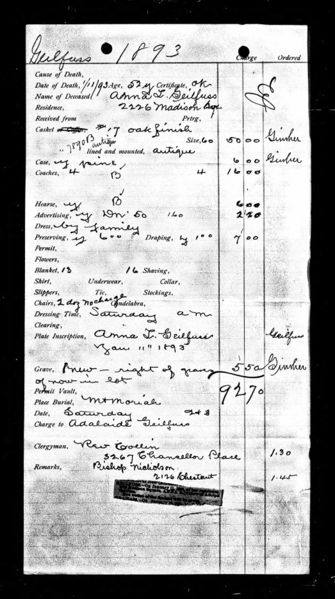 Geilfuss 1893
Charge Ordered
Cause of Death,
Date of Death, 1/11/93 Age, 52 y Certificate, ok
Name of Deceased, Anna F. Geilfuss
Residence, 2226 Madison
Received from Pctrg,
Casket 17 oak finish
Size, 60 50 00 Ginher
lined and mounted, antique
Case, y pine 6 00 Ginher
Coaches, 4 B 4 16 00
B
Hearse, y 6 00
Advertising, y 50 1.60 2 20
Dress, by family
Preserving, y 6 00 Draping, y 1 00 7 00
Permit,
Flowers,
Blanket, 13 16 Shaving,
Shirt, Underwear, Collar,
Slippers, Tie, Stockings,
Chairs, 2 doz no charge Candelabra,
Dressing Time, Saturday a m
Clearing,
Plate Inscription, Anna F. Geilfuss Geilfuss
Jan 11" 1893
Grave, 1 new - right of grave 5 50 Ginher
of now in lot
Permit Vault, 92 70
Place Burial, Mt Moriah
Date, Saturday
Charge to Adalaide Geilfuss
Clergyman, Rev Collin
3267 Chancellor Place 1.30
Remarks, Bishop Nicholson
2126 Chestnut 1.45